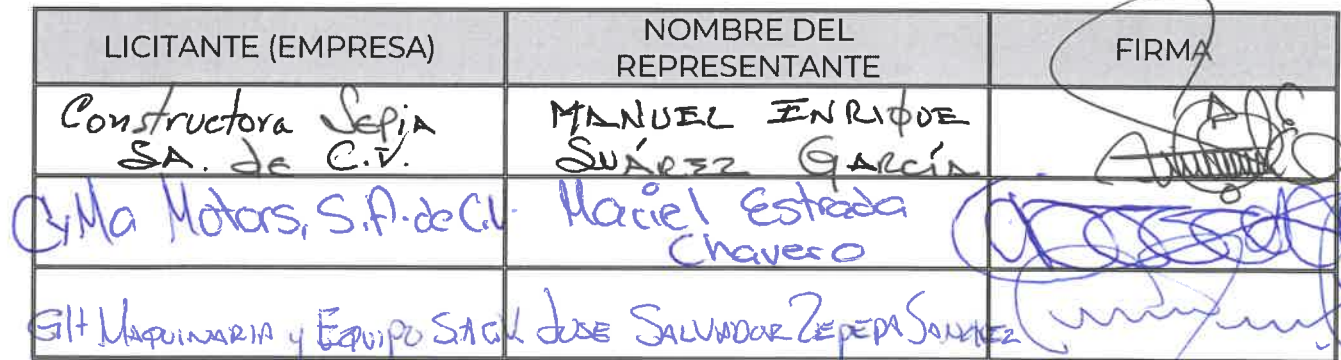 LICITANTE (EMPRESA)
NOMBRE DEL
REPRESENTANTE
FIRMA
Constructora Sepia
SA. de C.V.
MANUEL ENRIQUE
SUÁREZ GARCÍA
CyMa Motors, S.A. de C.V.
Maciel Estrada
Chavero
GH MAQUINARIA y EQUIPO SACV
JOSE SALVADOR ZEPEDA SANCHEZ